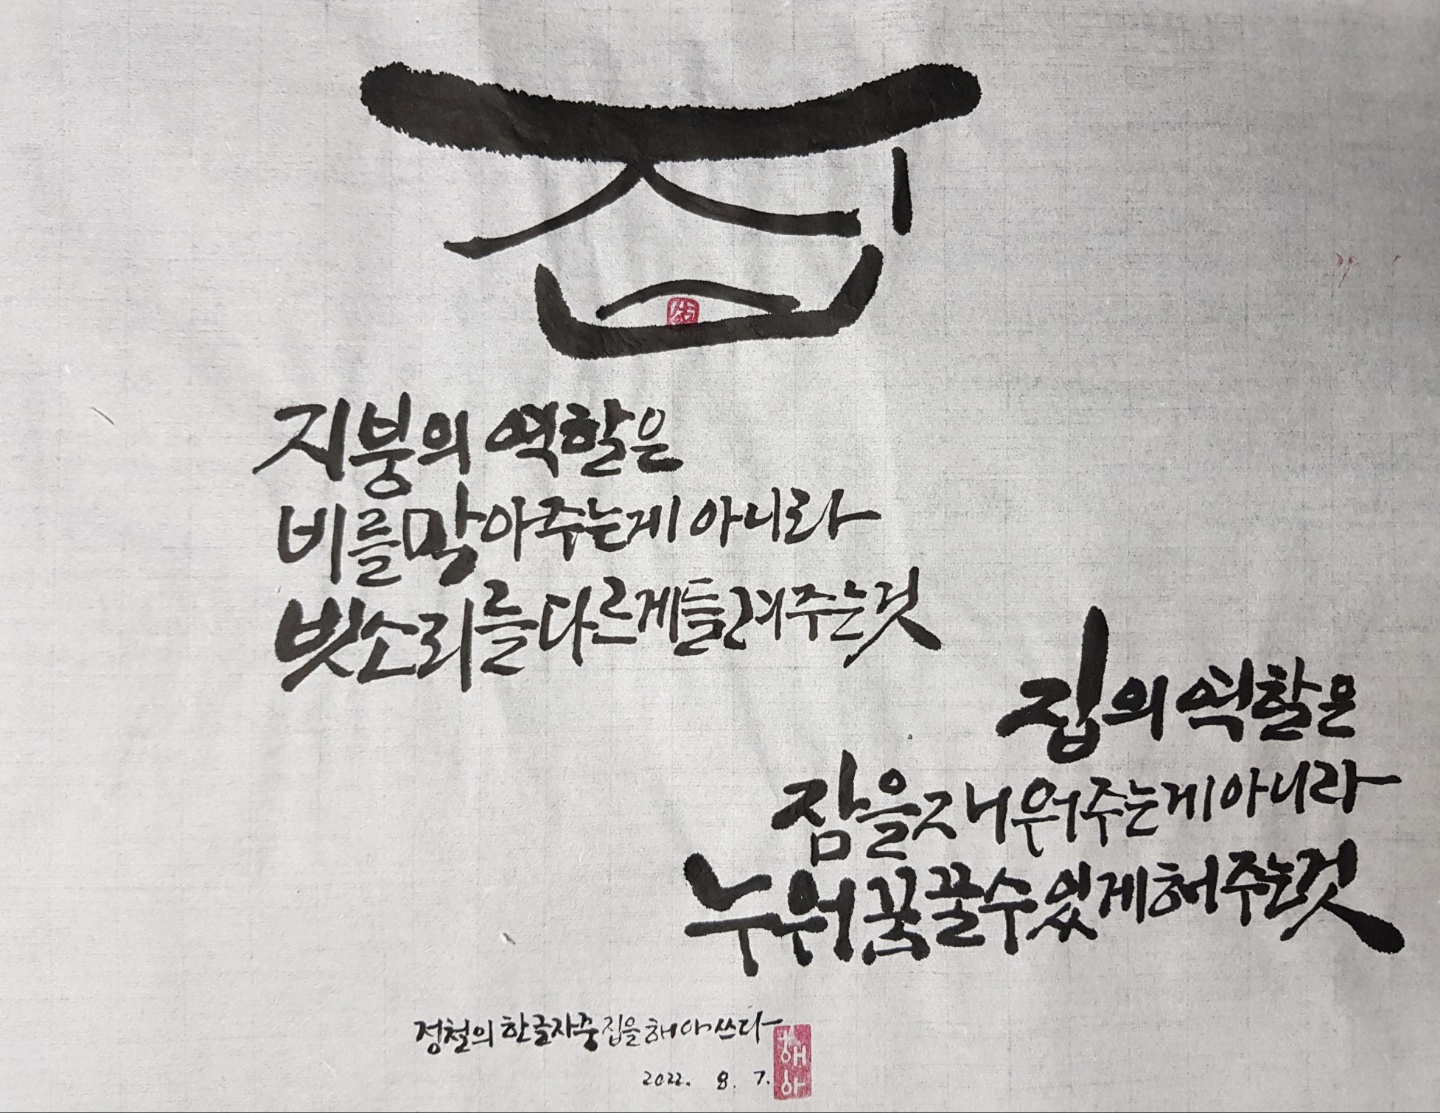 집
지붕의 역할은
비를 막아주는게 아니라
빗소리를 다르게 들려주는것
집의 역할은
잠을 재워주는게 아니라
누워 꿈꿀수 있게 해주는것
정철의 한글자중 집을 해아쓰다
2022. 8. 7.
해아